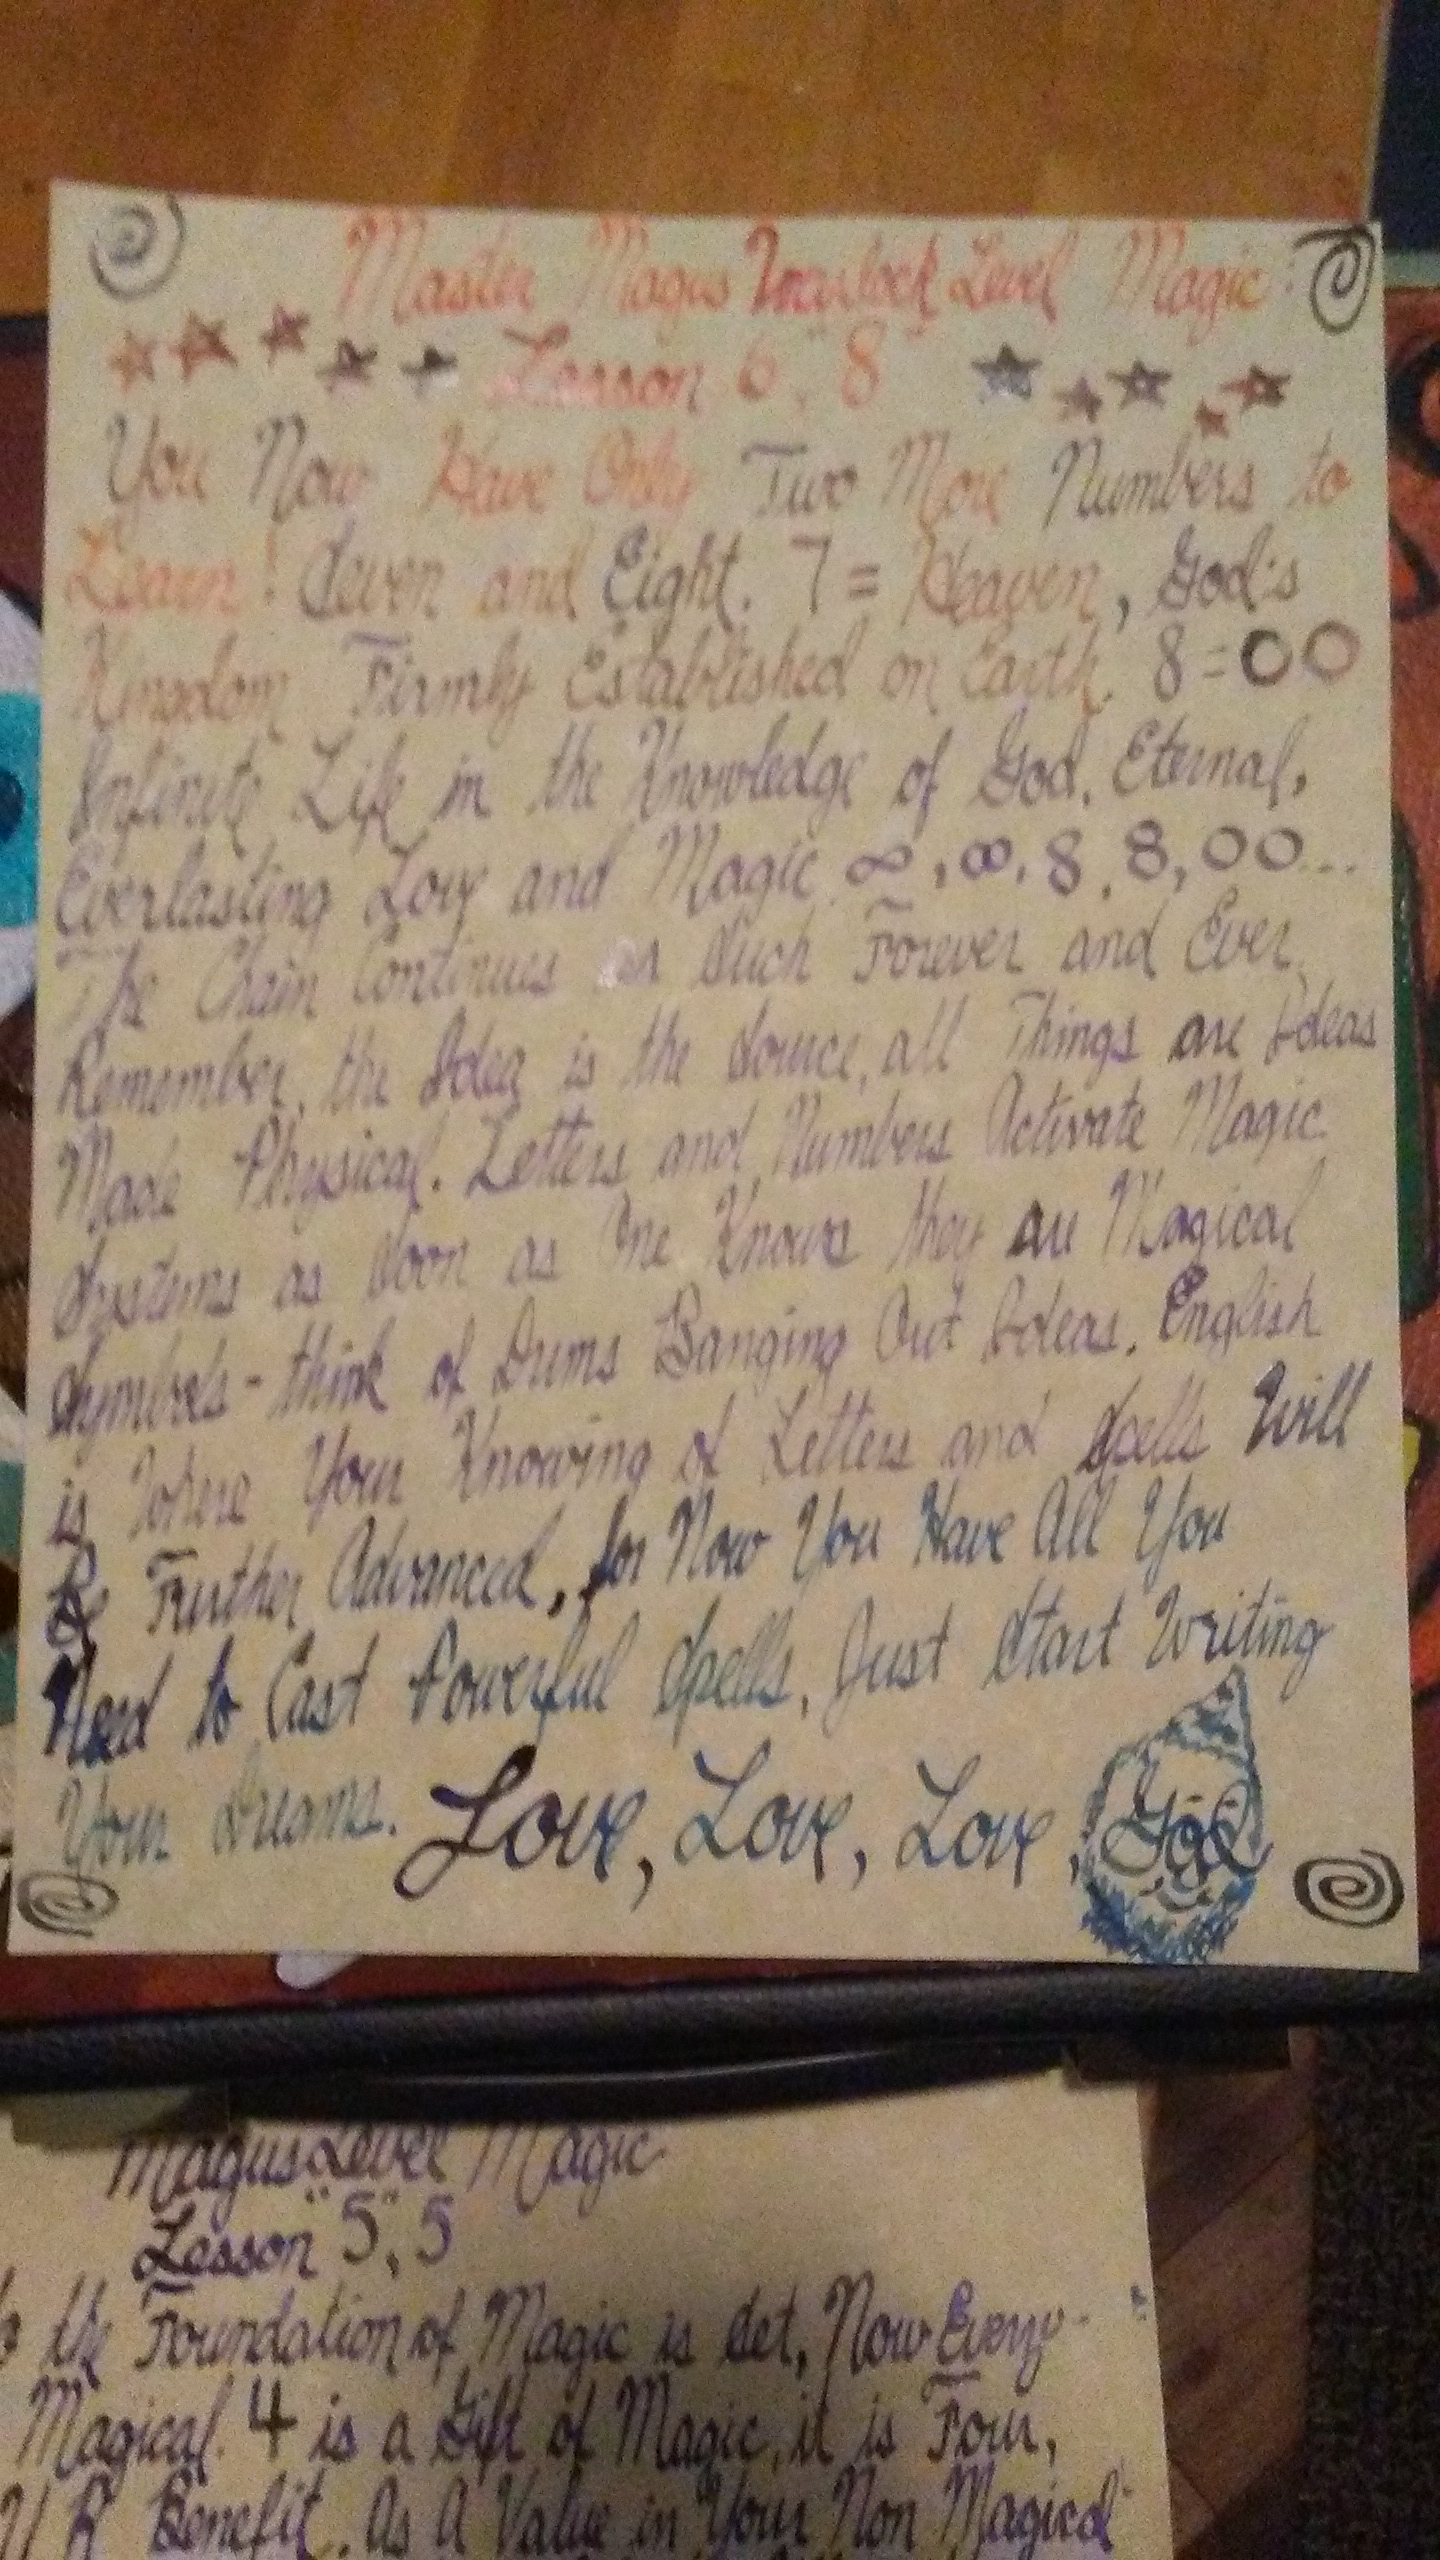 Master Magus Warlock Level Magic:
Lesson "6", 8
You Now Have Only Two More Numbers to
Learn! Seven and Eight. 7 = Heaven, God's
Kingdom Firmly Established on Earth. 8=OO
Infinite Life in the Knowledge of God. Eternal,
Everlasting Love and Magic ∞, ∞, 8, 8, OO...
The Chain Continues as Such Forever and Ever.
Remember, the Idea is the Source, all Things are Ideas
Made Physical. Letters and Numbers Activate Magic
Systems as Soon as One Knows they are Magical
Symbols - think of Drums Banging Out Ideas. English
is Where Your Knowing of Letters and Spells Will
Be Further Advanced, for Now You Have All You
Need to Cast Powerful Spells, Just Start Writing
Your Dreams. Love, Love, Love, God
Magus Level Magic
Lesson "5", 5
the Foundation of Magic is Set, Now Every-
Magical. 4 is a Gift of Magic, it is Four,
U R Benefit. As A Value in Your Non Magical